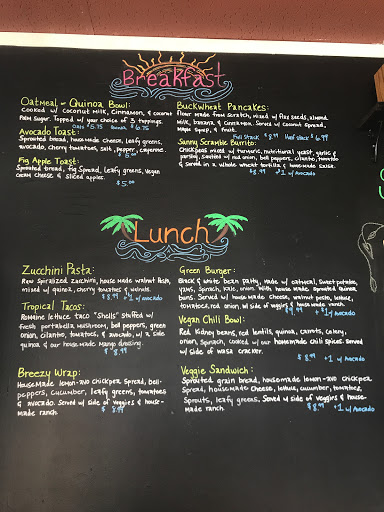 Breakfast
Oatmeal - Quinoa Bowl:
Cooked w/ coconut milk, cinnamon, & coconut
Palm sugar. Topped w/ your choice of 3 toppings.
$5.75 $6.75
Avocado Toast:
Sprouted bread, housmade cheese, leafy greens,
avocado, cherry tomatoes, salt, pepper, cayenne.
$5.00
Fig Apple Toast:
Sprouted bread, fig spread, leafy greens, vegan
cream cheese & sliced apples.
$5.00
Buckwheat Pancakes:
Flour made from scratch, mixed w/ flax seeds, almond
milk, banana, & cinnamon. Served w/ coconut spread,
maple syrup, & fruit.
Full Stack $8.99 Half stack $6.99
Sunny Scramble Burrito:
Chickpeas mixed w/ turmeric, nutritional yeast, garlic &
parsley, sautéed w/ red onion, bell peppers, cilantro, tomatoes
& served in a whole wheat tortilla & housemade salsa.
$8.99 +$1 w/ Avocado
Lunch
Zucchini Pasta:
Raw spiralized zucchini, house made walnut pesto,
mixed w/ quinoa, cherry tomatoes & walnuts.
$8.99 +$1 w/ Avocado
Tropical Tacos:
Romaine lettuce taco "Shells" stuffed w/
fresh portabella mushroom, bell peppers, green
onion, cilantro, tomatoes, & avocado, w/ a side
quinoa & our house made mango dressing.
$8.99
Breezy Wrap:
Housemade lemon-avo chickpea spread, bell-
peppers, cucumber, leafy greens, tomatoes
& avocado. Served w/ side of veggies & house-
made ranch. $8.99
Green Burger:
Black & white bean patty, made w/ oatmeal, sweet potatoes,
yams, spinach, kale, onion. With house made sprouted quinoa
buns. Served w/ house made cheese, walnut pesto, lettuce,
tomatoes, red onion, w/ side of veggies & house made ranch.
$9.99 +$1 w/ Avocado
Vegan Chili Bowl:
Red kidney beans, red lentils, quinoa, carrots, celery,
onion, spinach, cooked w/ our homemade chili spices. Served
w/ side of masa cracker.
$8.99 +1 w/ Avocado
Veggie Sandwich:
Sprouted grain bread, housemade lemon-avo chickpea
spread, housemade cheese, lettuce, cucumber, tomatoes,
sprouts, leafy greens. Served w/ side of veggies & house-
made ranch. $8.99 +1 w/ Avocado